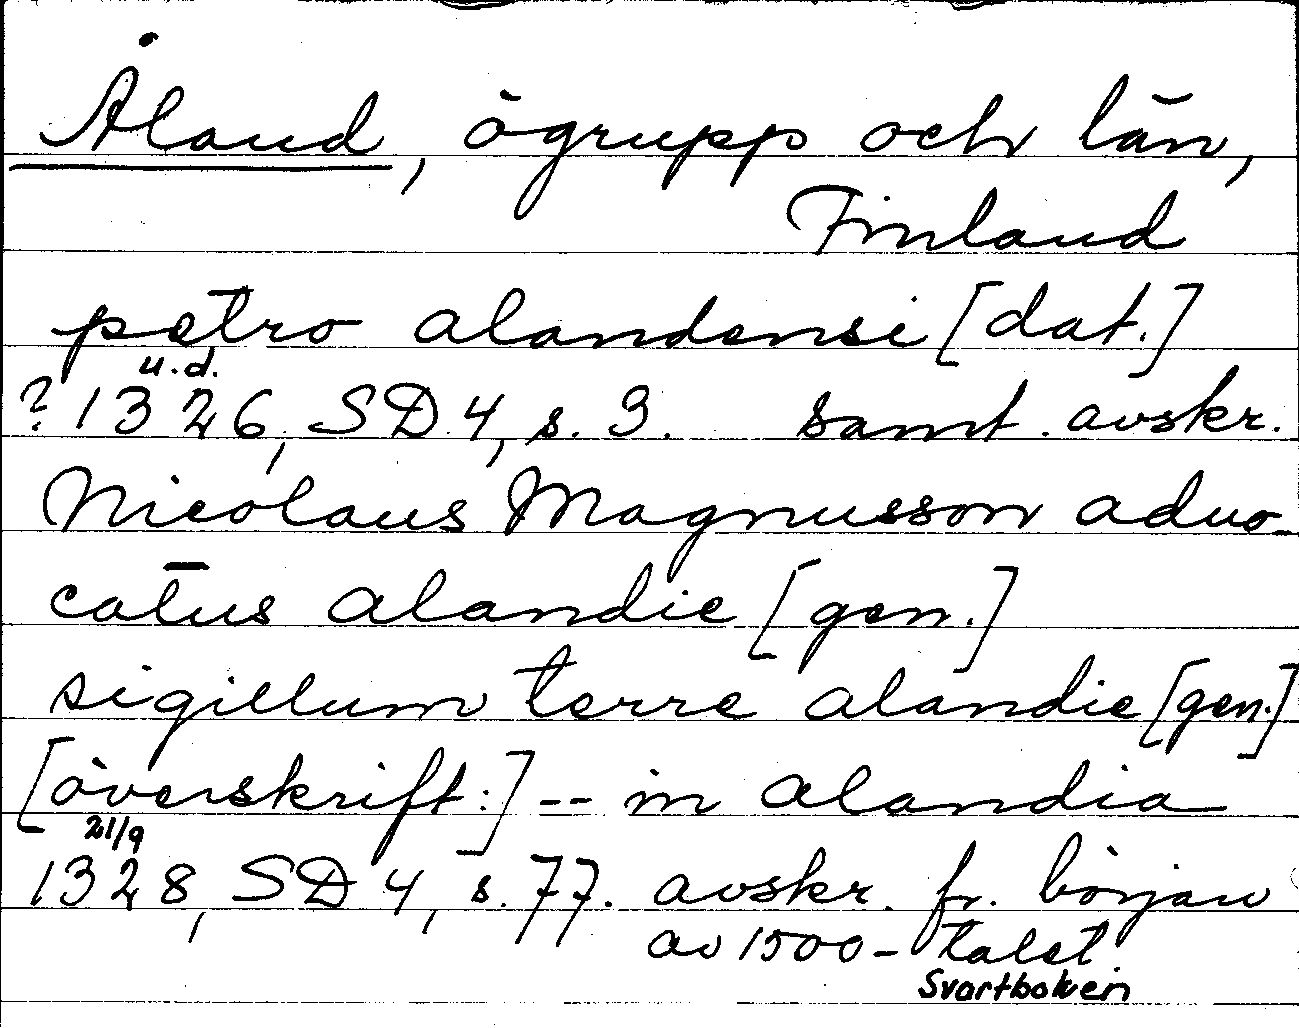 Åland, ögrupp och län,
Finland
petro alandensi [dat.]
u.d.
? 1326, SD 4, s. 3. samt. avskr.
Nicolaus Magnusson aduo-
catus alandie [gen.]
sigillum terre alandie [gen.]
[överskrift:] -- in alandia
21/9
1328, SD 4, s. 77. avskr. fr. början
av 1500-talet.
Svartboken